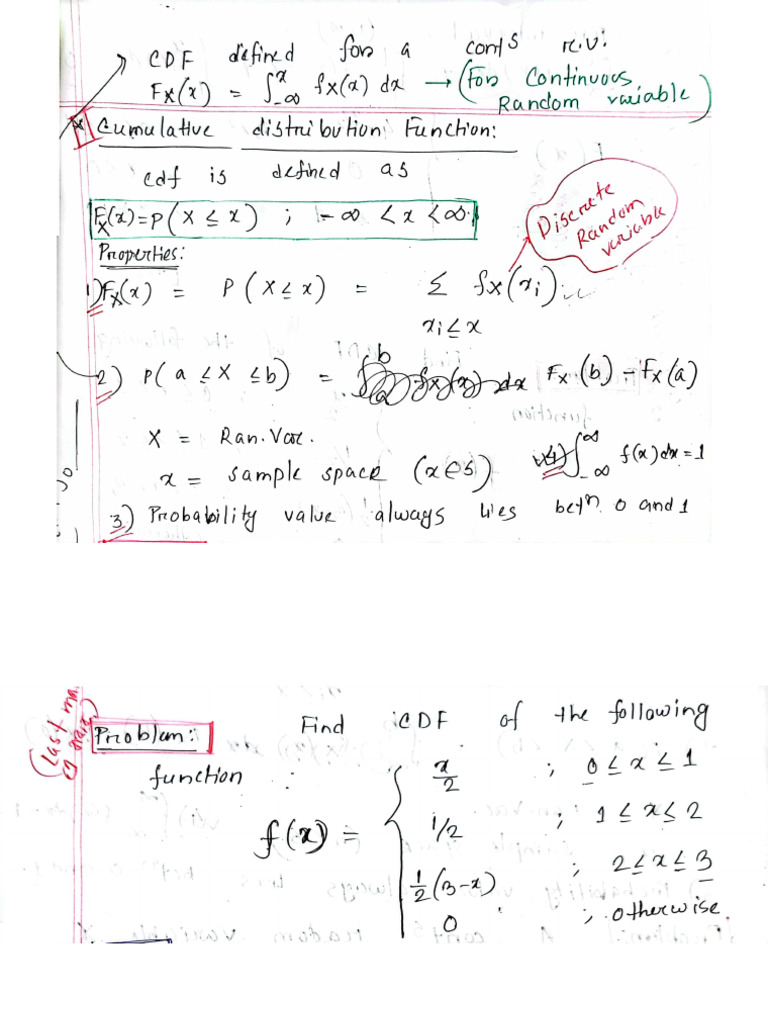 CDF defined for a conts r.v:
Fx(x) = ∫_{-∞}^{x} fx(x) dx → (For Continuous Random variable)
* Cumulative distribution Function:
cdf is defined as
Fx(x) = P(X ≤ x) ; -∞ < x < ∞.
Discrete Random variable
Properties:
1) Fx(x) = P(X ≤ x) = Σ fx(xi)
xi ≤ x
2) P(a ≤ X ≤ b) = Fx(b) - Fx(a)
X = Ran. Var.
x = sample space (x∈S)
4) ∫_{-∞}^{∞} f(x) dx = 1
3) Probability value always lies betⁿ 0 and 1
Problem: Find CDF of the following
function :
f(x) = { x/2 ; 0 ≤ x ≤ 1
1/2 ; 1 ≤ x ≤ 2
1/2 (3-x) ; 2 ≤ x ≤ 3
0 ; otherwise.